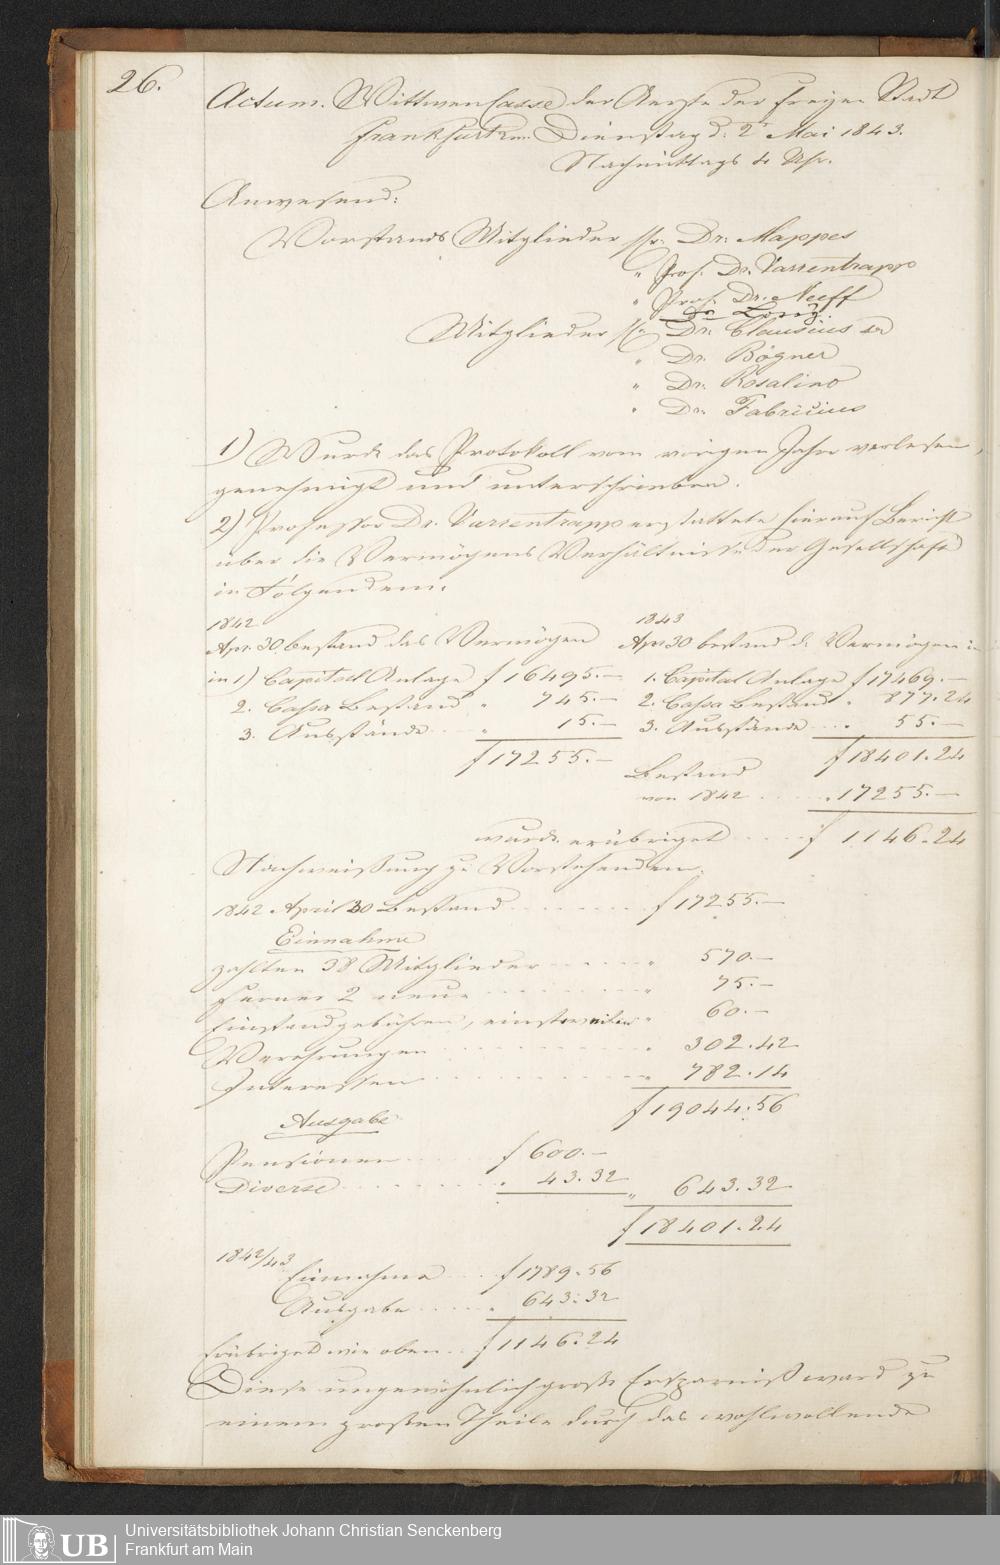 26.
Actum. Wittwen Casse der Aerzte der freyen Stadt
Frankfurt a/m. Dienstag d: 2t Mai 1843.
Nachmittags 4 Uhr.
Anwesend:
Vorstands Mitglieder Hr. Dr: Mappes
" Prof. Dr. Varrentrapp
" Prof. Dr. Neeff
Dr Lorey.
Mitglieder Hr. Dr: Clausius
" Dr. Bögner
" Dr. Rosalino
" Dr. Fabricius
1) Wurde das Protokoll vom vorigen Jahre verlesen,
genehmigt und unterschrieben.
2) Professor Dr. Varrentrapp erstattete hierauf Bericht
über die Vermögens Verhältnisse der Gesellschaft
in Folgendem:
1842
Apr. 30. bestand das Vermögen
in 1) Capital Anlage f 16495.—
2. Cassa Bestand " 745.—
3. Ausstände " 15.—
f 17255.—
1843
Apr 30 bestand d. Vermögen in
1. Capital Anlage f 17469.—
2. Cassa Bestand " 877.24
3. Ausstände " 55.—
f 18401.24
Bestand
von 1842 " 17255.—
wurde erübriget f 1146.24
Nachweißung zu Vorstehendem.
1842 April 30 Bestand f 17255.—
Einnahme
zahlten 38 Mitglieder " 570.—
Ferner 2 neue " 75.—
Einstandgebühren, einstweilen " 60.—
Verehrungen " 302.42
Interessen " 782.14
f 19044.56
Ausgabe
Pensionen f 600.—
Diverse " 43.32 " 643.32
f 18401.24
1842/43
Einnahme f 1789.56
Ausgabe " 643.32
Erübriget wie oben f 1146.24
Diese ungewöhnlich große Ersparniß ward zu
einem großen Theile durch das wohlwollende
Universitätsbibliothek Johann Christian Senckenberg
UB Frankfurt am Main